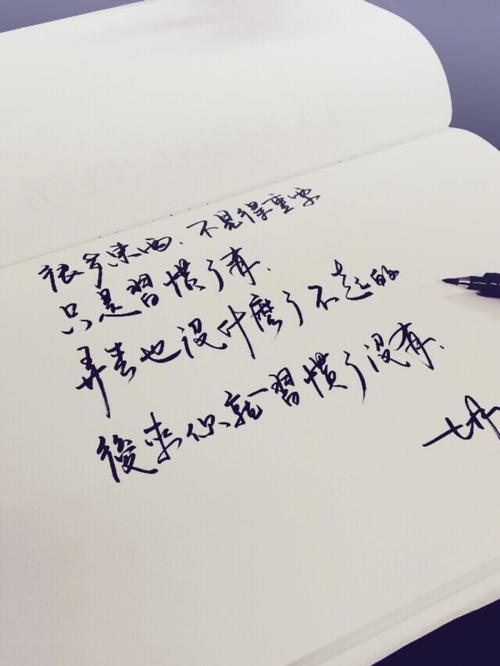 很多東西、不見得重要
只是習慣了有.
弄丟也沒什麼了不起的
後來你就習慣了沒有.